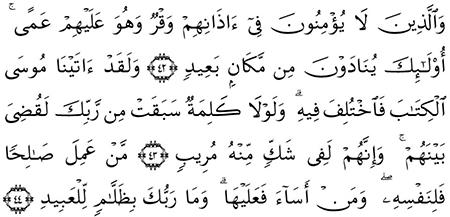 وَٱلَّذِينَ لَا يُؤْمِنُونَ فِىٓ ءَاذَانِهِمْ وَقْرٌ وَهُوَ عَلَيْهِمْ عَمًى ۚ
أُو۟لَـٰٓئِكَ يُنَادَوْنَ مِن مَّكَانٍۭ بَعِيدٍ ﴿٤٢﴾ وَلَقَدْ ءَاتَيْنَا مُوسَى
ٱلْكِتَـٰبَ فَٱخْتُلِفَ فِيهِ ۗ وَلَوْلَا كَلِمَةٌ سَبَقَتْ مِن رَّبِّكَ لَقُضِىَ
بَيْنَهُمْ ۚ وَإِنَّهُمْ لَفِى شَكٍّ مِّنْهُ مُرِيبٍ ﴿٤٣﴾ مَّنْ عَمِلَ صَـٰلِحًا
فَلِنَفْسِهِۦ ۖ وَمَنْ أَسَآءَ فَعَلَيْهَا ۗ وَمَا رَبُّكَ بِظَلَّـٰمٍ لِّلْعَبِيدِ ﴿٤٤﴾